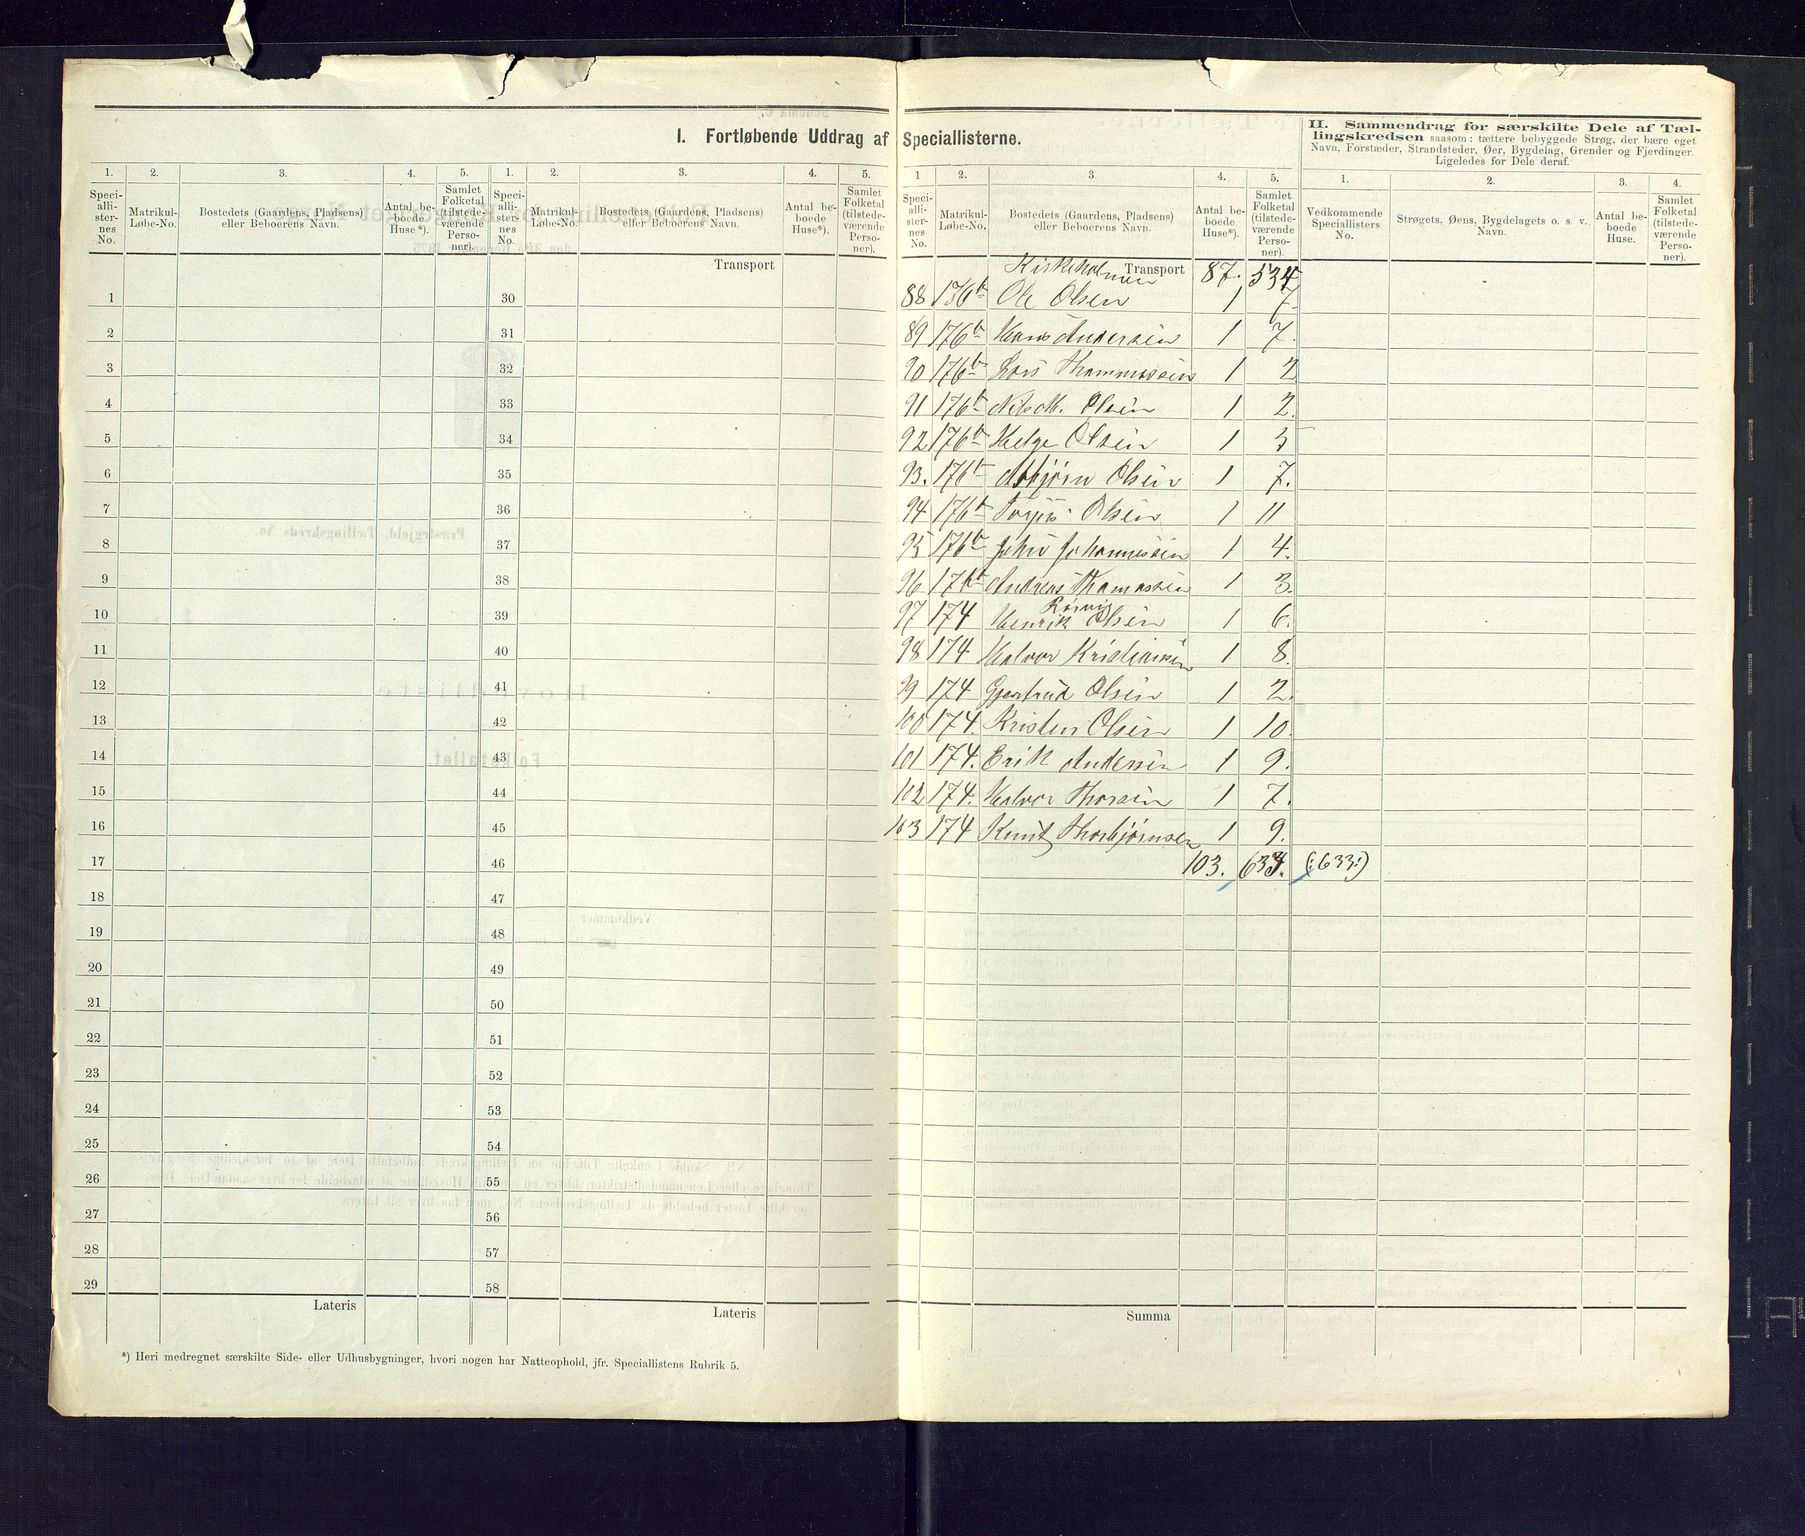 I. Fortløbende Uddrag af Speciallisterne.
II. Sammendrag for særskilte Dele af Tællingskredsen saasom: tættere bebyggede Strøg, der bære eget
Navn, Forstæder, Strandsteder, Øer, Bygdelag, Grender og Fjerdinger.
Ligeledes for Dele deraf.
1. 2. 3. 4. 5. 1. 2. 3. 4. 5.
Speciallisternes No. Matrikul-Løbe-No. Bostedets (Gaardens, Pladsens) eller Beboerens Navn. Antal beboede Huse*). Samlet Folketal (tilstedeværende Personer).
Speciallisternes No. Matrikul-Løbe-No. Bostedets (Gaardens, Pladsens) eller Beboerens Navn. Antal beboede Huse*). Samlet Folketal (tilstedeværende Personer).
Transport
1 30
2 31
3 32
4 33
5 34
6 35
7 36
8 37
9 38
10 39
11 40
12 41
13 42
14 43
15 44
16 45
17 46
18 47
19 48
20 49
21 50
22 51
23 52
24 53
25 54
26 55
27 56
28 57
29 58
Lateris Lateris
*) Heri medregnet særskilte Side- eller Udhusbygninger, hvori nogen har Natteophold, jfr. Speciallistens Rubrik 5.
1 2. 3. 4. 5. 1. 2. 3. 4.
Speciallisternes No. Matrikul-Løbe-No. Bostedets (Gaardens, Pladsens) eller Beboerens Navn. Antal beboede Huse*). Samlet Folketal (tilstedeværende Personer).
Vedkommende Speciallisters No. Strøgets, Øens, Bygdelagets o. s. v. Navn. Antal beboede Huse. Samlet Folketal (tilstedeværende Personer).
Kirkeholmen Transport 87. 534
88 176b Ole Olsen 1 7
89 176b Hans Andersen 1 7.
90 176b Lars Thommassen 1 2
91 176b Nils M. Olsen 1 2.
92 176b Helge Olsen 1 5
93. 176b Asbjørn Olsen 1 7.
94 176b Torjus Olsen 1 11
95 176b John Johannessen 1 4.
96 176b Andreas Thomassen 1 3.
Rørvig
97 174 Henrik Olsen 1 6.
98 174 Halvor Kristiansen 1 8.
99 174 Gjertrud Olsen 1 2.
100 174. Kristen Olsen 1 10.
101 174. Erik Andersen 1 9.
102 174. Halvor Thorsen 1 7.
103 174 Knut Thorbjørnsen 1 9.
103. 633. (:633:)
Summa